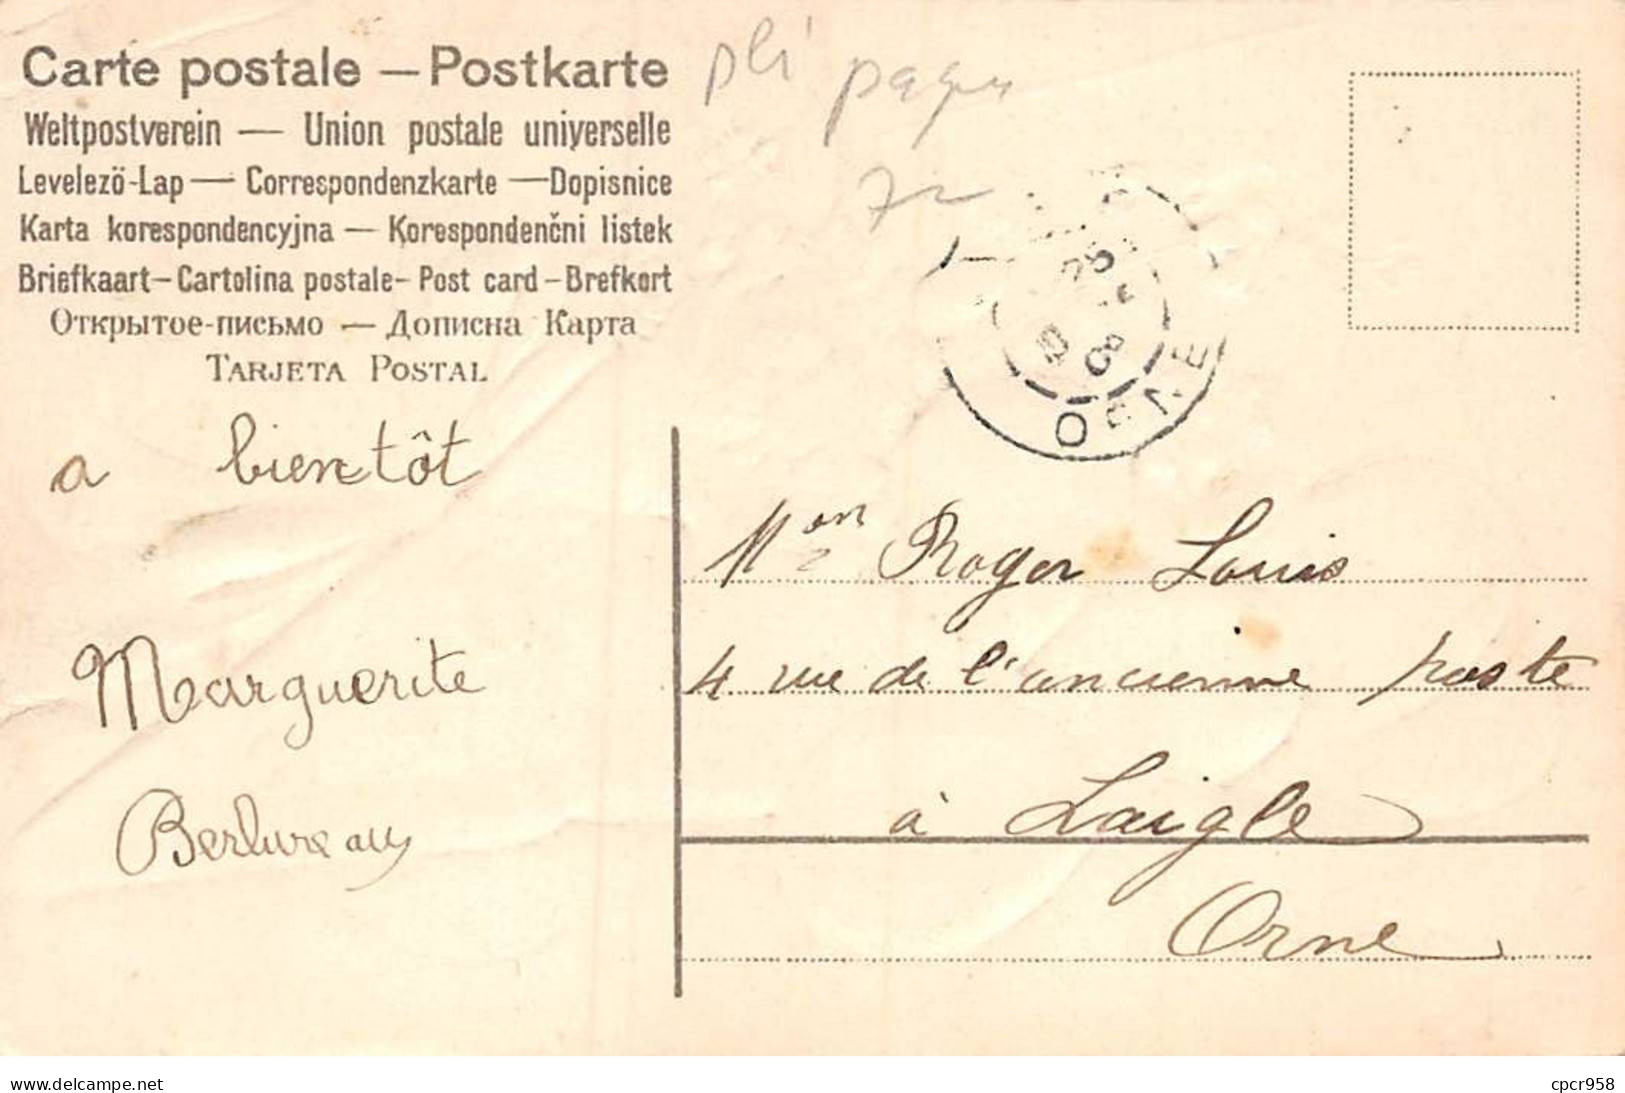 Carte postale — Postkarte
Weltpostverein — Union postale universelle
Levelezö-Lap — Correspondenzkarte — Dopisnice
Karta korespondencyjna — Korespondenčni listek
Briefkaart — Cartolina postale - Post card - Brefkort
Открытое-письмо — Дописна Карта
TARJETA POSTAL
pli
ORNE
a bientôt
Marguerite
Mon Roger Louis
4 rue de l'ancienne poste
à Laigle
Orne
www.delcampe.net
cpcr958